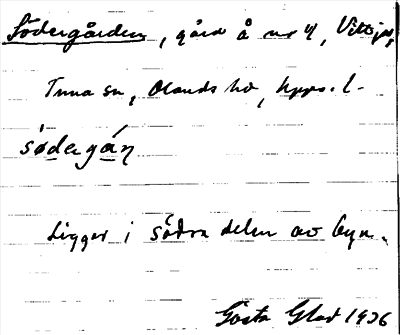 Södergården, gård å nr 4,
Tuna sn, Olands hd, Upps. l.
södergán
Ligger i södra delen av byn.
Gösta Glad 1926